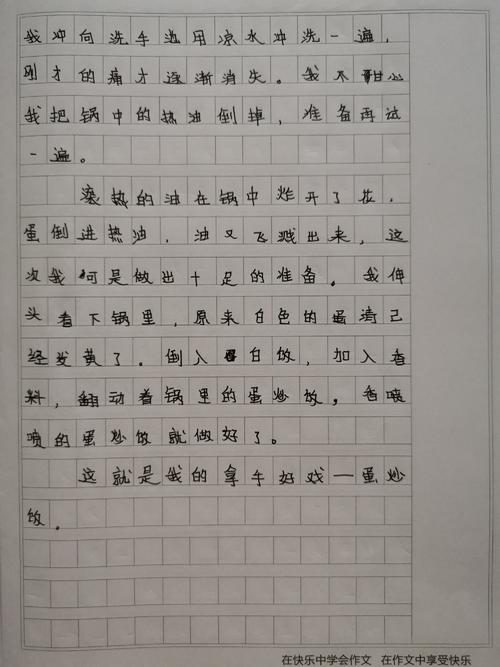 我冲向洗手边用凉水冲洗一遍，
刚才的痛才逐渐消失。我不甜心
我把锅中的热油倒掉，准备再试
一遍。
滚热的油在锅中炸开了花，
蛋倒进热油，油又飞溅出来，这
次我可是做出十足的准备。我伸
头看下锅里，原来白色的蛋清已
经发黄了。倒入白饭，加入香
料，翻动着锅里的蛋炒饭。香喷
喷的蛋炒饭就做好了。
这就是我的拿手好戏一蛋炒
饭。
在快乐中学会作文 在作文中享受快乐